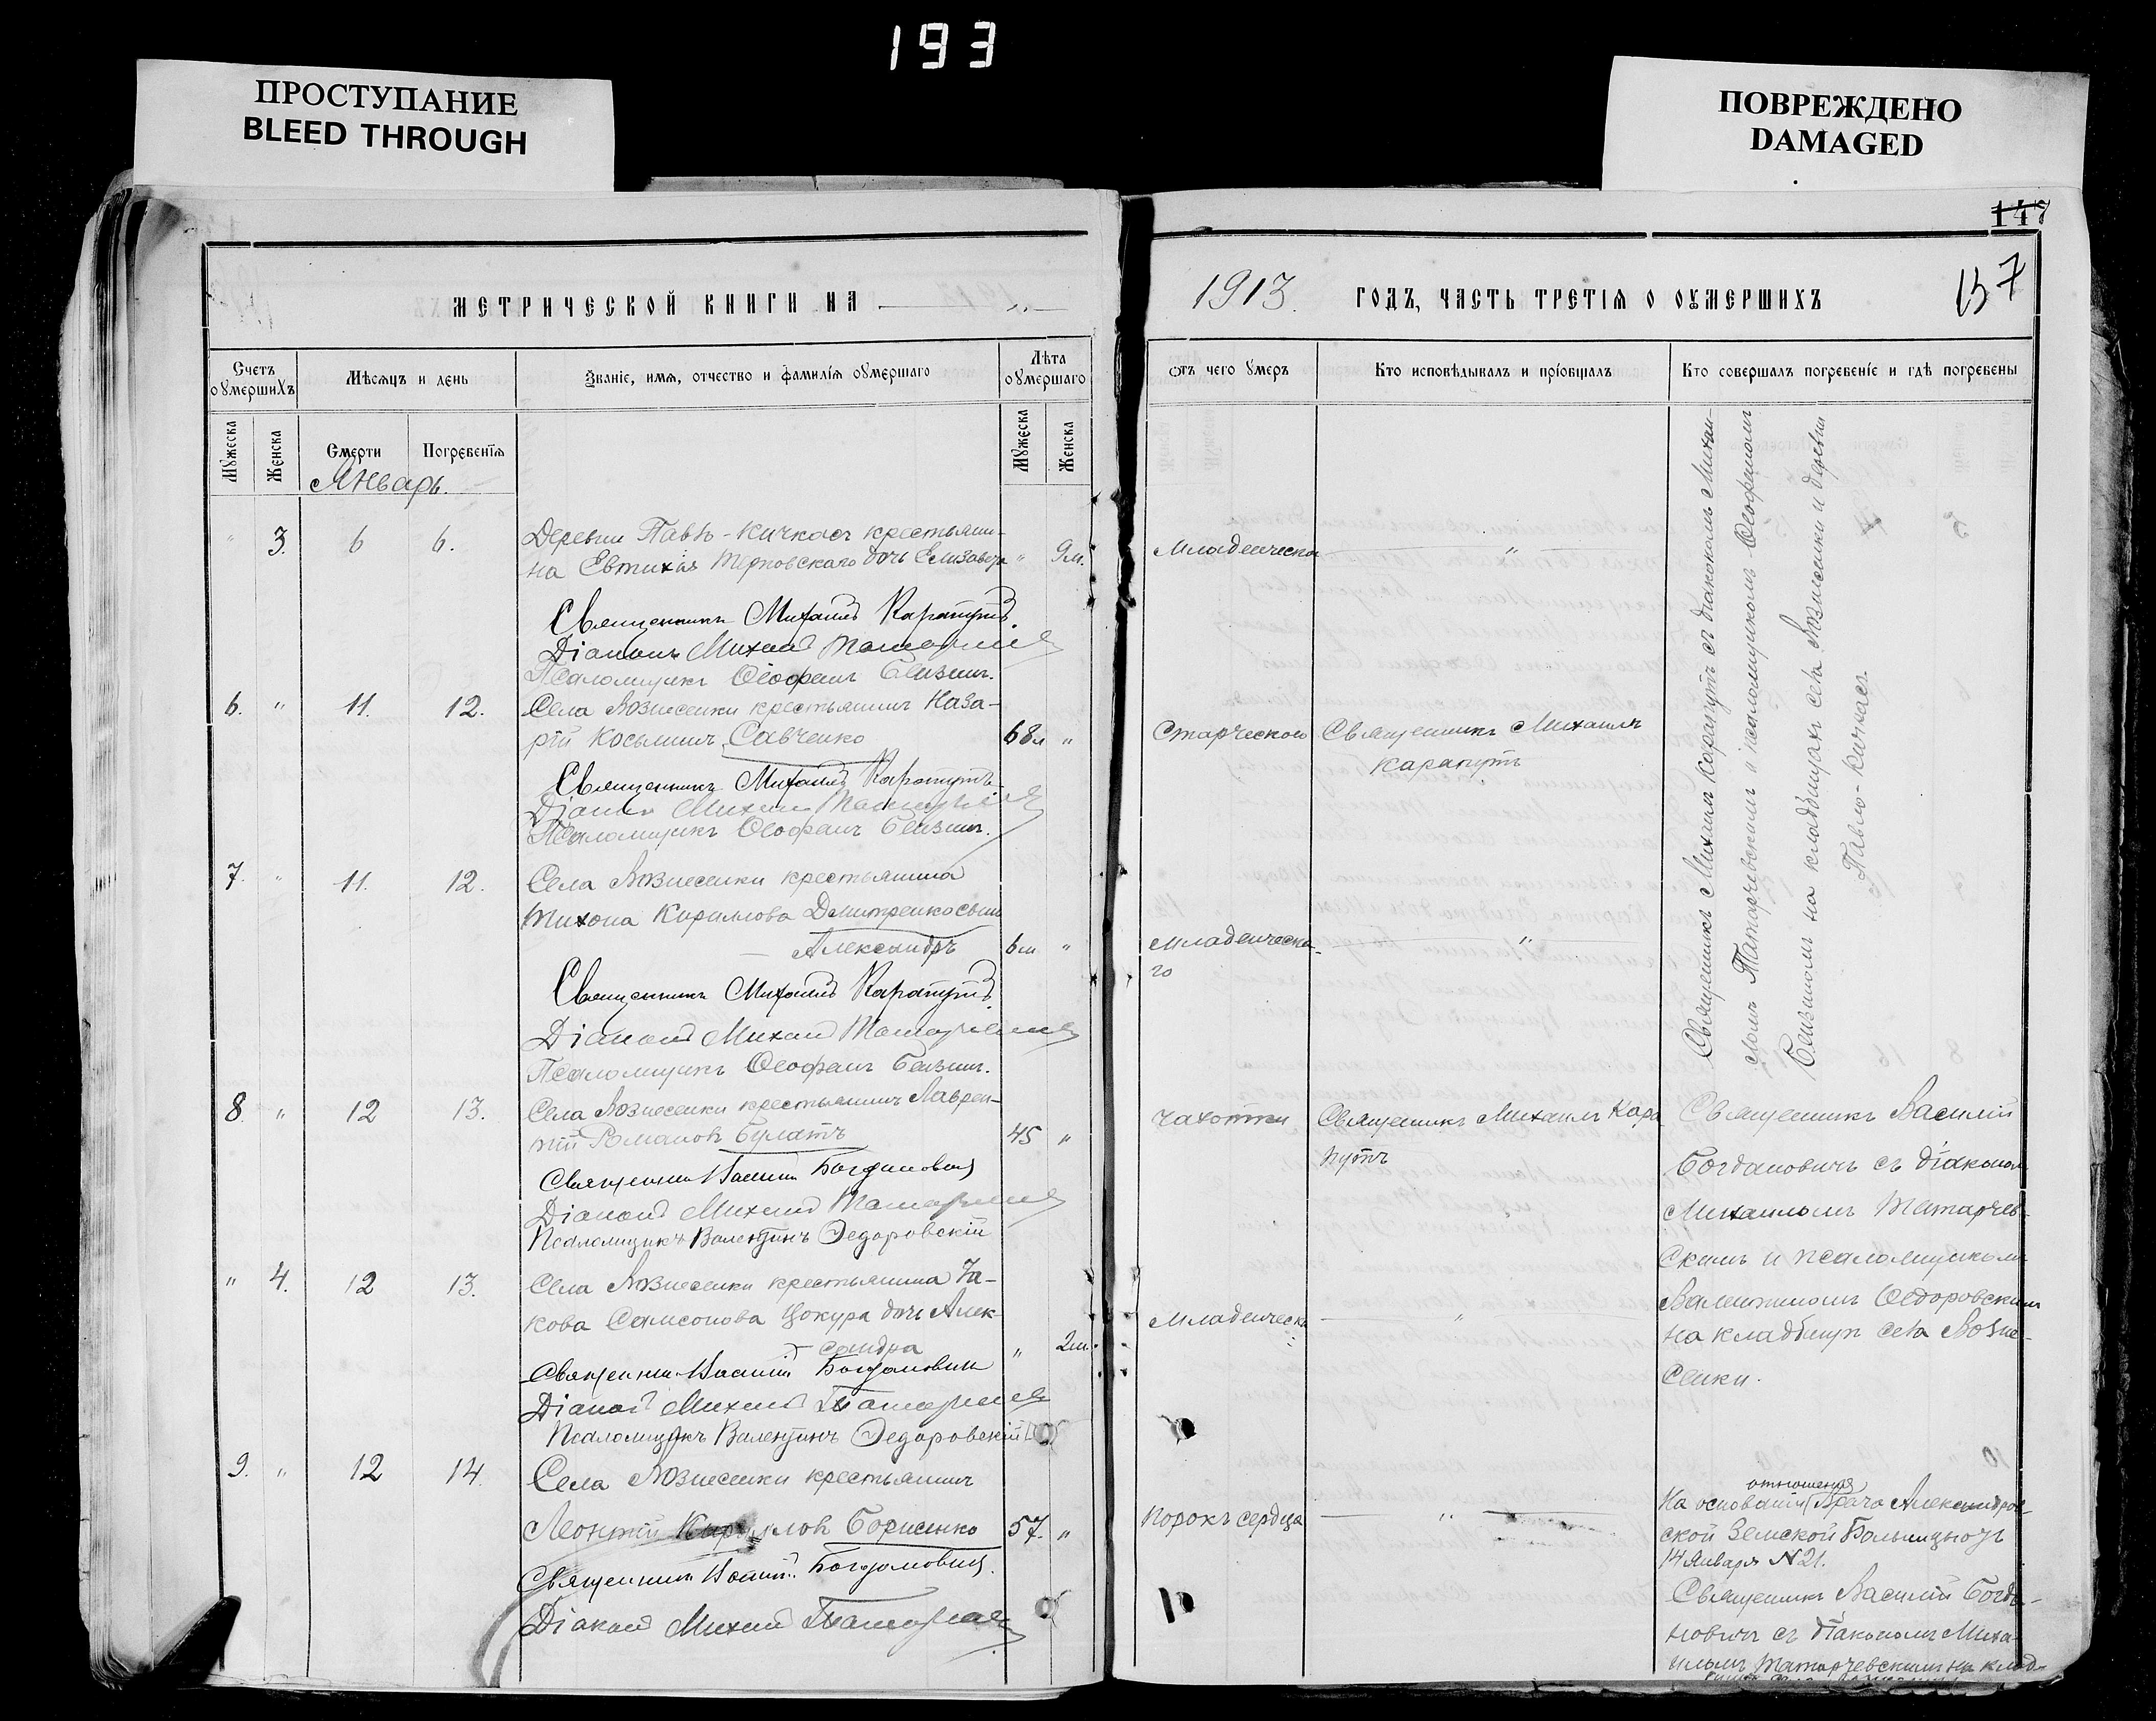 193
ПРОСТУПАНИЕ
BLEED THROUGH
ПОВРЕЖДЕНО
DAMAGED
147
МЕТРИЧЕСКОЙ КНИГИ НА
1913. ГОДЪ, ЧАСТЬ ТРЕТІЯ О ОУМЕРШИХЪ
157
Счетъ оумершихъ
Мѣсяцъ и день
Званіе, имя, отчество и фамилія оумершаго
Лѣта оумершаго
Отъ чего умеръ
Кто исповѣдывалъ и пріобщалъ
Кто совершалъ погребеніе и гдѣ погребены
Мужеска
Женска
Смерти
Погребенія
Мужеска
Женска
Январь.
" 3. 6 6.
Деревни Павло-Кичкасъ крестьяни-
на Евтихія Терновскаго дочь Елизавета " 9м.
Младенческа "
Священникъ Михаилъ Карапутъ.
Діаконъ Михаилъ Татарчевскій
Псаломщикъ Ѳеофанъ Бензинъ.
6. " 11. 12.
Села Вознесенки крестьянинъ Наза-
рій Косьминъ Савченко 68л "
Старческою
Священникъ Михаилъ
Карапутъ
Священникъ Михаилъ Карапутъ
Діаконъ Михаилъ Татарчевскій
Псаломщикъ Ѳеофанъ Бензинъ.
7. " 11. 12.
Села Вознесенки крестьянина
Тихона Кириллова Дмитренко сынъ
Александръ 6м "
Младенческа-
го "
Священникъ Михаилъ Карапутъ.
Діаконъ Михаилъ Татарчевскій
Псаломщикъ Ѳеофанъ Бензинъ.
Священникъ Михаилъ Карапутъ съ діакономъ Михаи-
ломъ Татарчевскимъ и псаломщикомъ Ѳеофаномъ
Бензиномъ на кладбищахъ села Вознесенки и деревни
Павло-Кичкасъ.
8 " 12 13.
Села Вознесенки крестьянинъ Лаврен-
тій Романовъ Булатъ 45 "
Чахотки
Священникъ Михаилъ Кара
путъ
Священникъ Василій Богдановичъ
Діаконъ Михаилъ Татарчевскій
Псаломщикъ Валентинъ Ѳедоровскій
" 4. 12 13.
Села Вознесенки крестьянина Іа-
кова Самсонова Цокура дочь Алек-
сандра " 2м.
Младенческа "
Священникъ Василій Богдановичъ
Діаконъ Михаилъ Татарчевскій
Псаломщикъ Валентинъ Ѳедоровскій
Священникъ Василій
Богдановичъ съ діакономъ
Михаиломъ Татарчев-
скимъ и псаломщикомъ
Валентиномъ Ѳедоровскимъ
на кладбищѣ села Возне-
сенки.
9. " 12 14.
Села Вознесенки крестьянинъ
Леонтій Кирилловъ Борисенко 57. "
Порокъ сердца "
Священникъ Василій Богдановичъ.
Діаконъ Михаилъ Татарчевскій
отношенія
На основаніи Врача Александров-
ской Земской Больницы отъ
14 Января №21.
Священникъ Василій Богда-
новичъ съ діакономъ Миха-
иломъ Татарчевскимъ на клад-